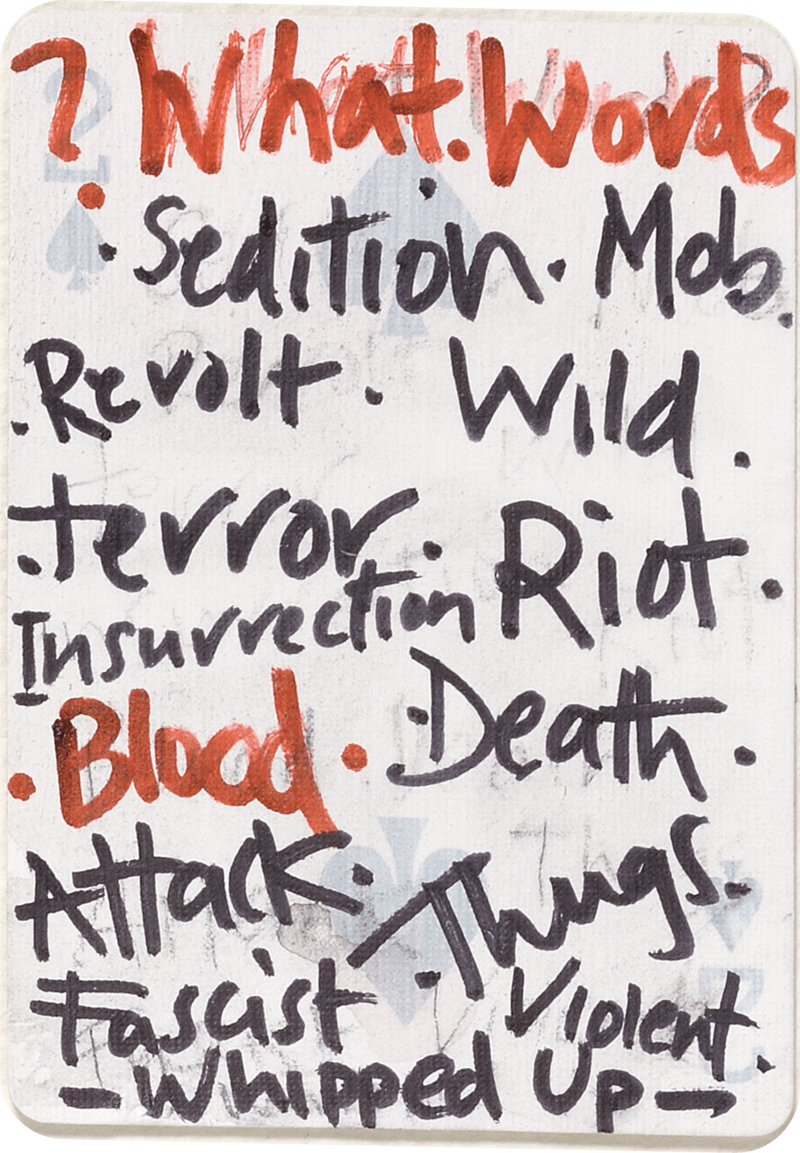 ? What. Words
· Sedition · Mob.
. Revolt . Wild .
. terror . Riot .
Insurrection
. Blood . Death .
Attack. Thugs.
Fascist . Violent.
- Whipped Up -